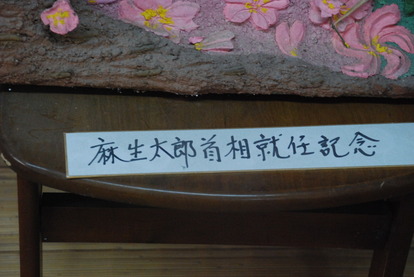 麻生太郎首相就任記念